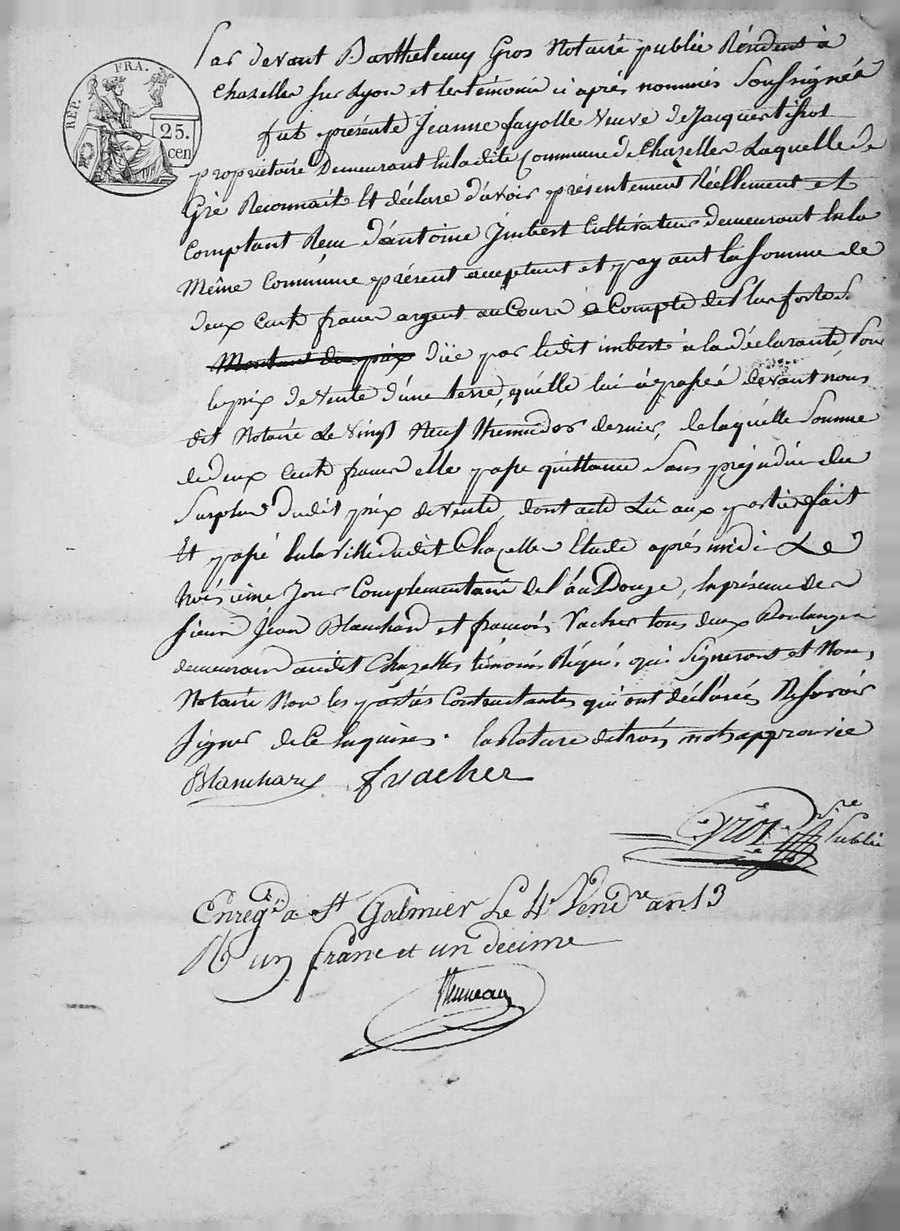 RÉP. FRA.
25.
cen
Par devant Barthelemy Gros Notaire public Résident à
Chazelles sur Lyon et les témoins ci après nommés Soussignés
fut présente Jeanne fayolle Veuve de Jacques
propriétaire Demeurant en la dite Commune de Chazelles Laquelle de
Gré Reconnait Et déclare d'avoir présentement Réellement et
Comptant Reçu d'antoine Jmbert Cultivateur demeurant en la
Même Commune présent acceptant et payant la Somme de
deux cents francs argent au Cours à Compte de Plus forte S
Montant du prix düe par ledit imbert à la déclarante Pour
le prix de Vente d'une terre, qu'elle lui à passée devant nous
dit Notaire Le Vingt Neuf thermidor dernier, de laquelle Somme
de deux cents francs elle passe quittance Sans préjudice du
Surplus dudit prix de Vente, dont acte Lû aux parties fait
Et passé en la Ville dudit Chazelles Etude après midi Le
troisième Jour Complementaire de l'an Douze, En présence de
Sieurs Jean Blanchard et francois Vacher tous deux Boulangers
demeurans audit Chazelles témoins Réquis, qui Signeront et Nous
Notaire Non les parties Contractantes qui ont déclarés Ne Savoir
Signer de Ce Enquises. la Rature de trois mots approuvée
Blanchard fvacher
Gros Nre Public
Enregé a St Galmier Le 4 Vendre an 13
R un franc et un decime